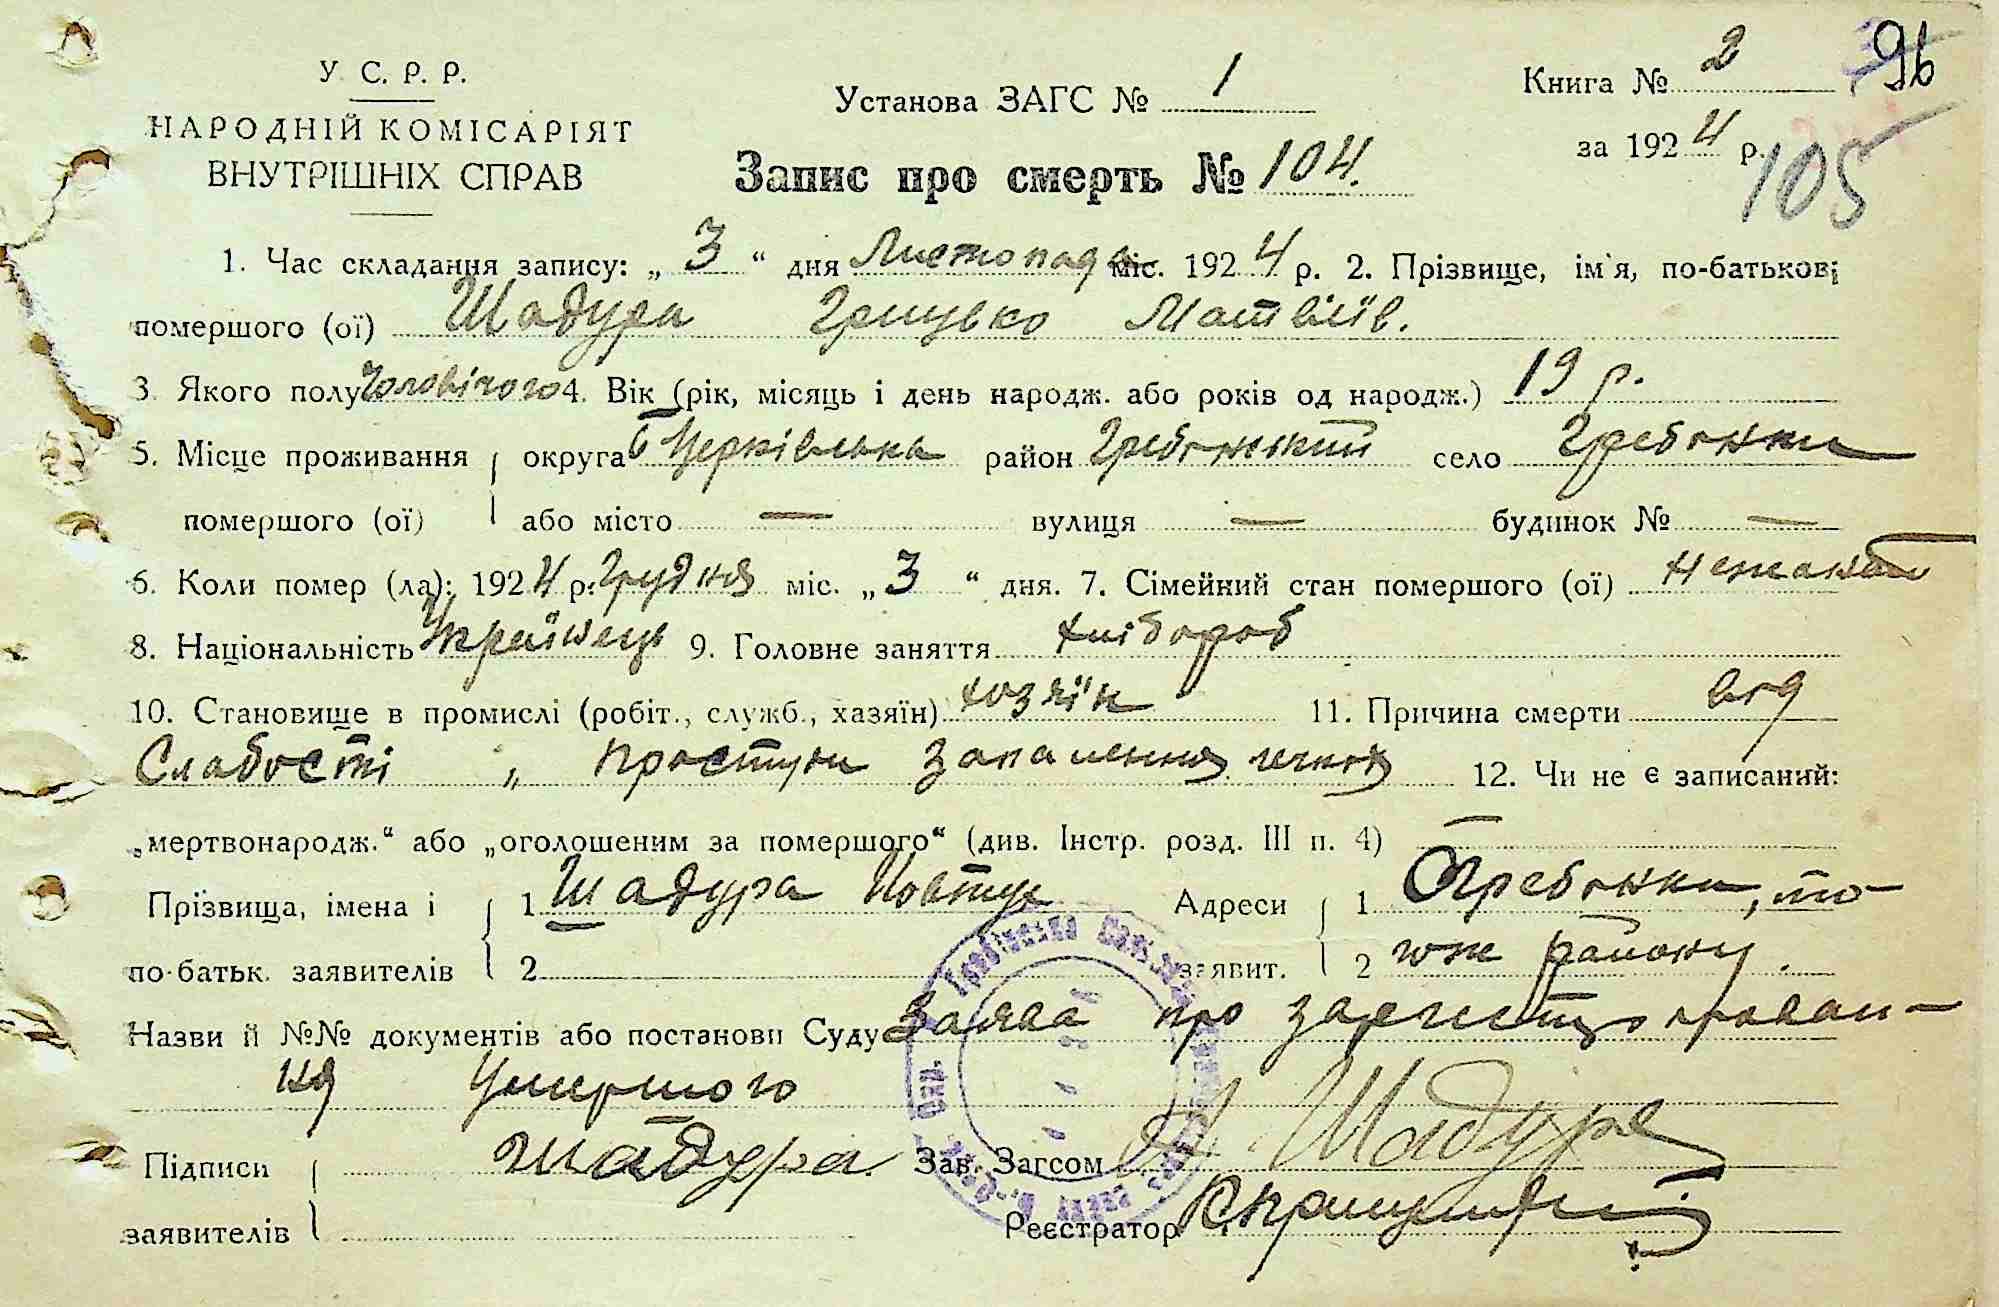 У. С. Р. Р.
НАРОДНІЙ КОМІСАРІЯТ
ВНУТРІШНІХ СПРАВ
Установа ЗАГС № 1
Книга № 2
96
за 1924 р.
105
Запис про смерть № 104.
1. Час складання запису: „ 3 “ дня Листопада міс. 1924 р. 2. Прізвище, ім'я, по-батькові
помершого (ої) Шадура Грицько Матвіїв.
3. Якого полу Чоловічого 4. Вік (рік, місяць і день народж. або років од народж.) 19 р.
5. Місце проживання округа Б Церківська район Гребінський село Гребінки
помершого (ої) або місто — вулиця — будинок № —
6. Коли помер (ла): 1924 р. Грудня міс. „ 3 “ дня. 7. Сімейний стан помершого (ої) нежонат
8. Національність Українець 9. Головне заняття хлібороб
10. Становище в промислі (робіт., служб., хазяїн) хозяїн 11. Причина смерти від
Слабості „ простуди запалення легких 12. Чи не є записаний:
„мертвонародж.“ або „оголошеним за помершого“ (див. Інстр. розд. III п. 4) —
Прізвища, імена і 1 Шадура Адреси 1 Гребінки, то
по-батьк. заявителів 2 заявит. 2 гож району.
Назви й №№ документів або постанови Суду Заява про
ня Умершого
Підписи Шадура Зав. Загсом Шадура
заявителів Реєстратор